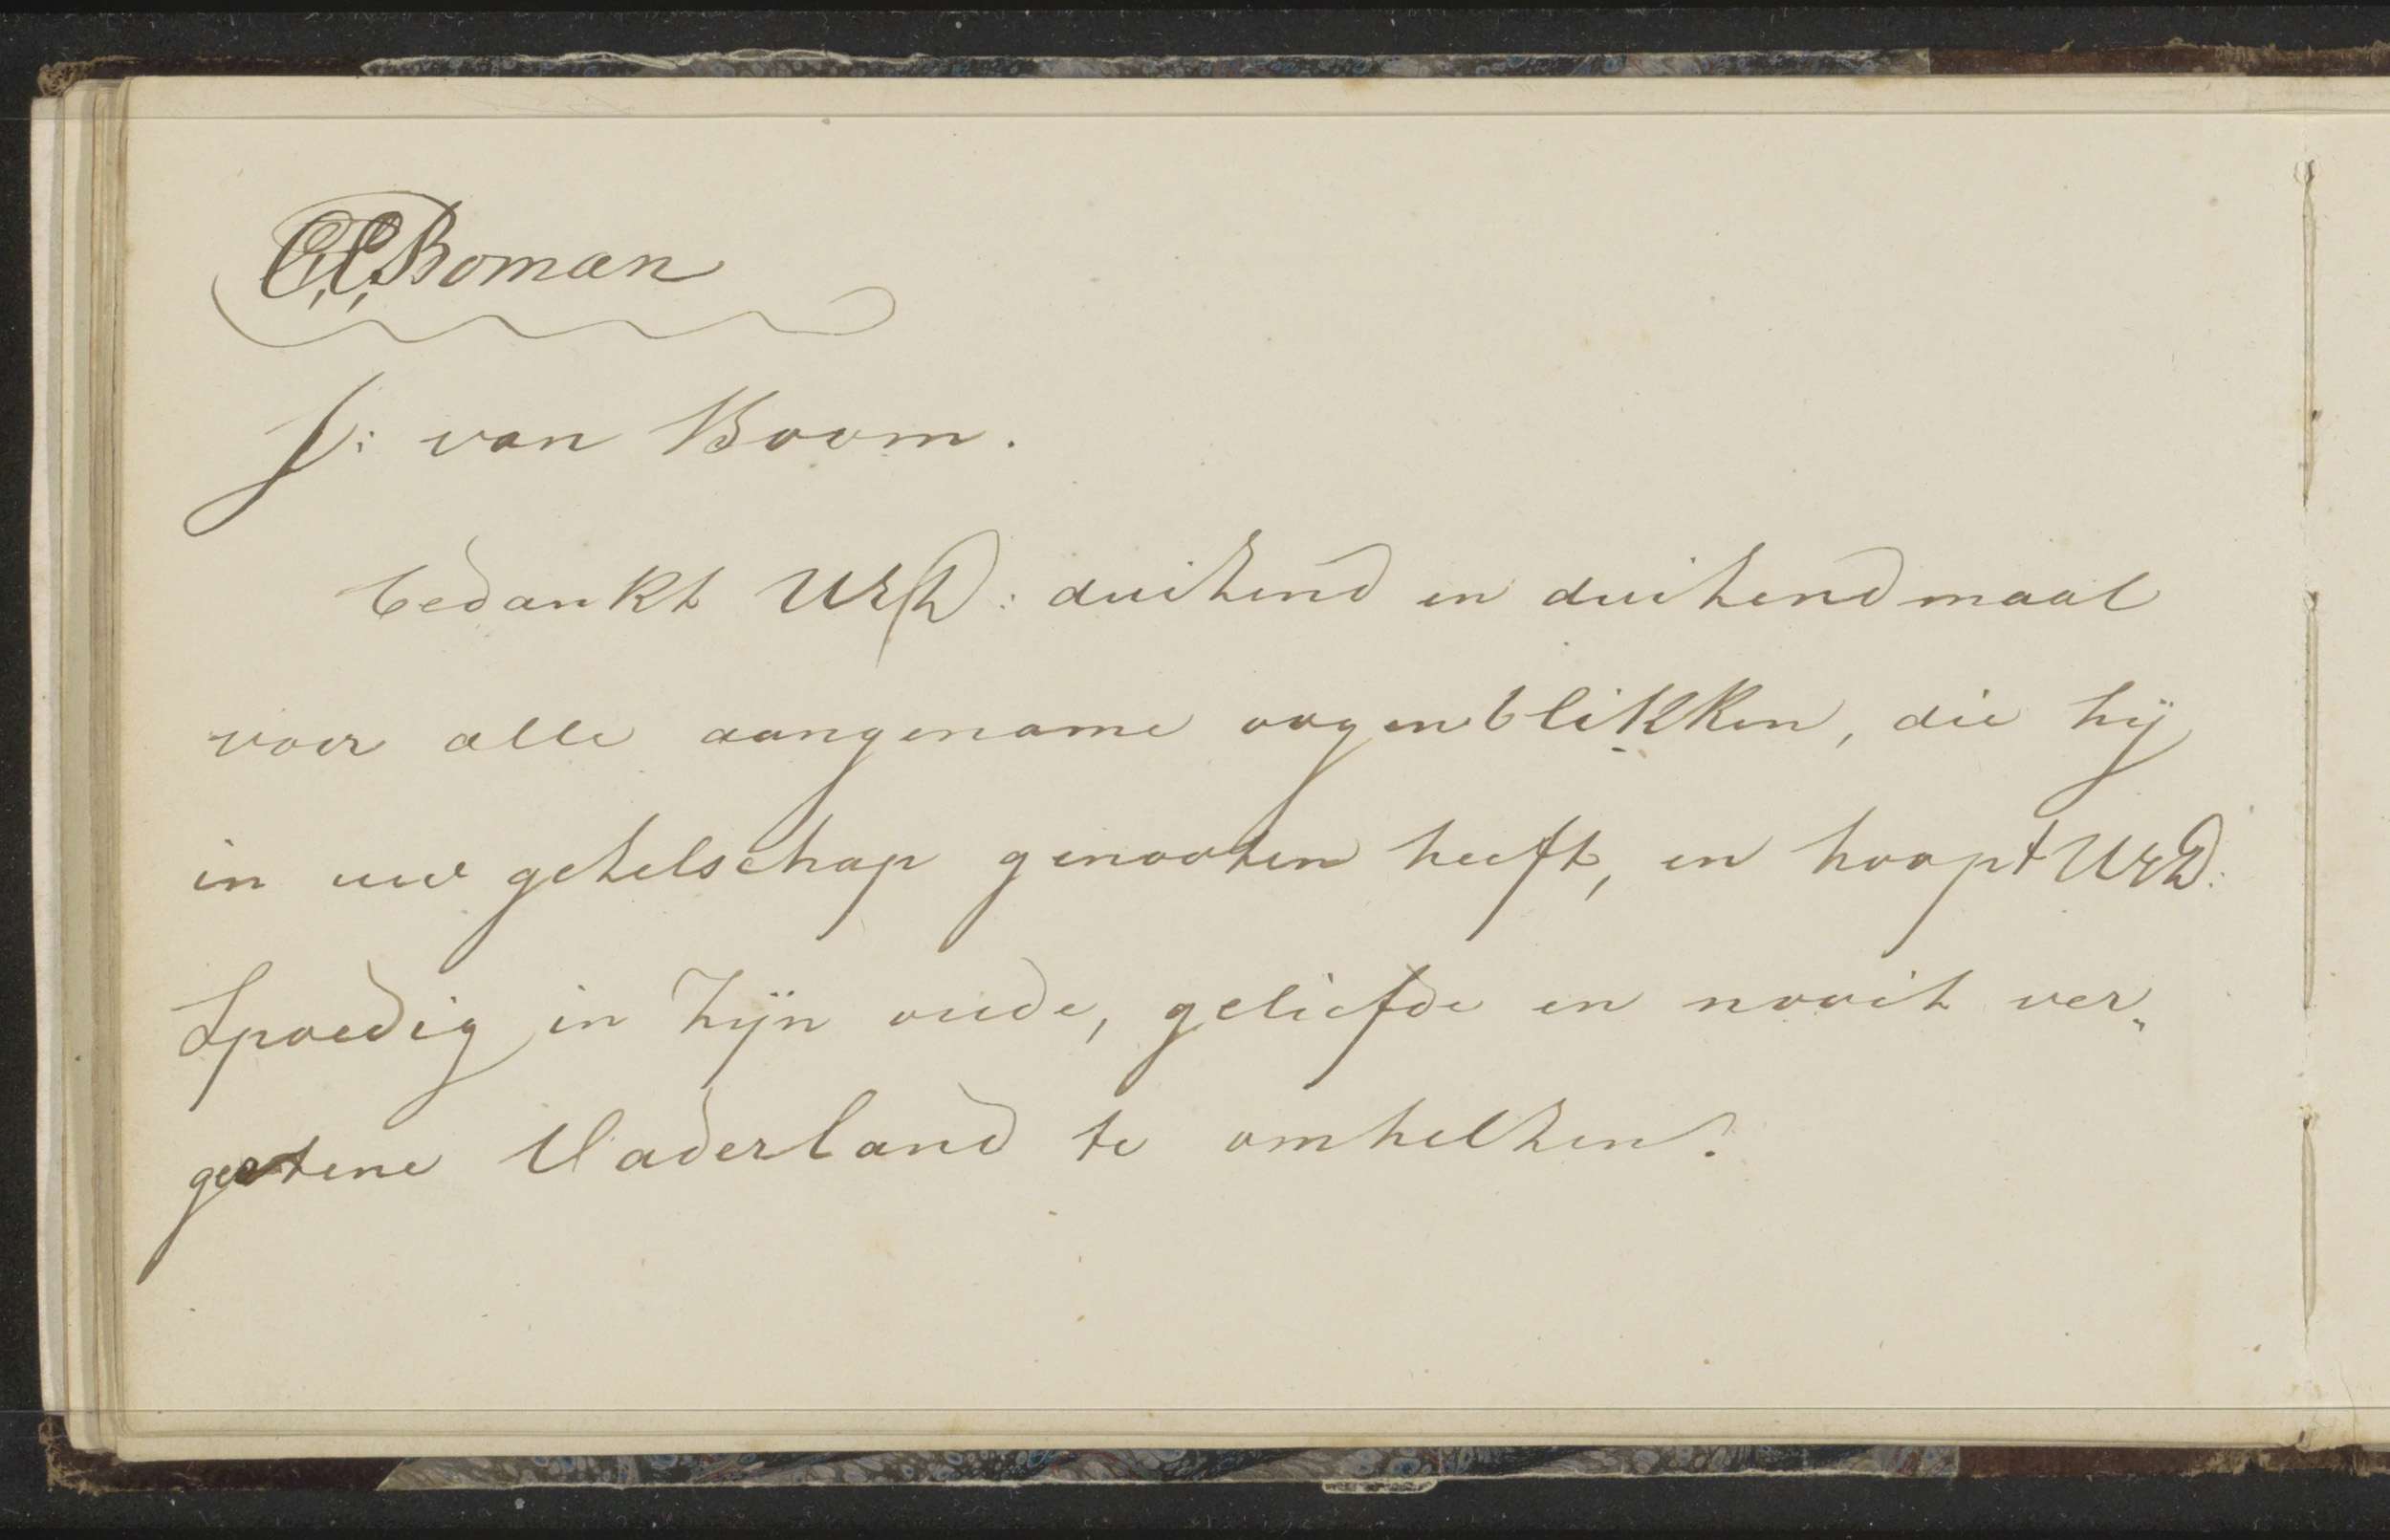 C,C,Boman
J: van Boom.
bedankt UEd: duizend en duizendmaal
voor alle aangename oogenblikken, die hij
in uw gezelschap genooten heeft, en hoopt UEd:
Spoedig in zijn oude, geliefde en nooit ver„
getene Vaderland te omhelzen!